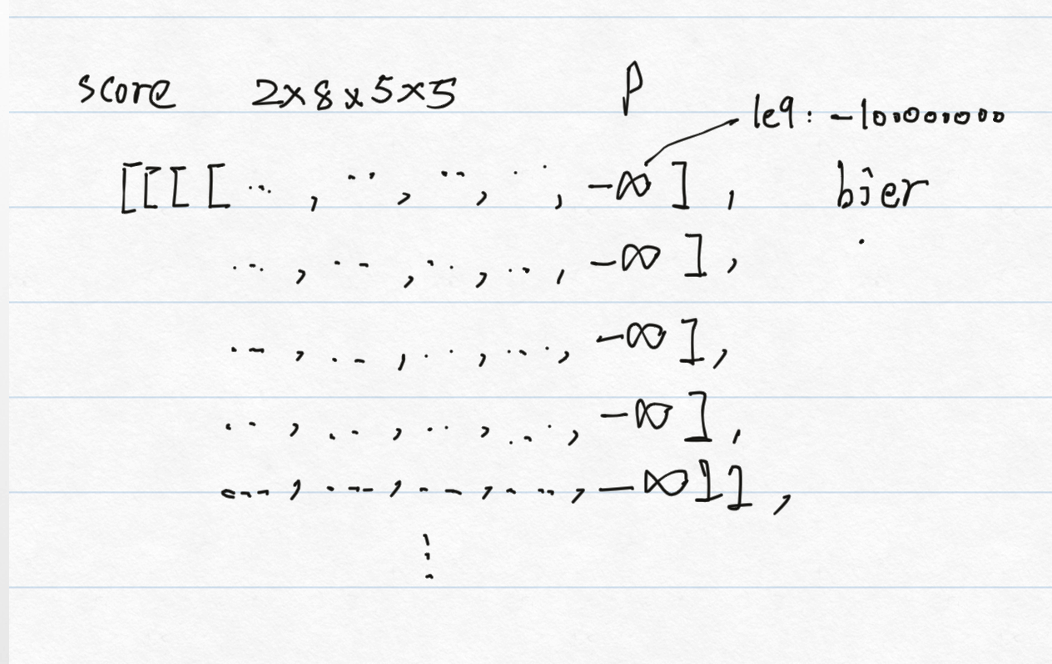 score 2×8×5×5 P
le9: -100000000
[[[[ ..., ..., ..., ..., -∞ ], bier
..., ..., ..., ..., -∞ ],
..., ..., ..., ..., -∞ ],
..., ..., ..., ..., -∞ ],
..., ..., ..., ..., -∞ ]],
⋮